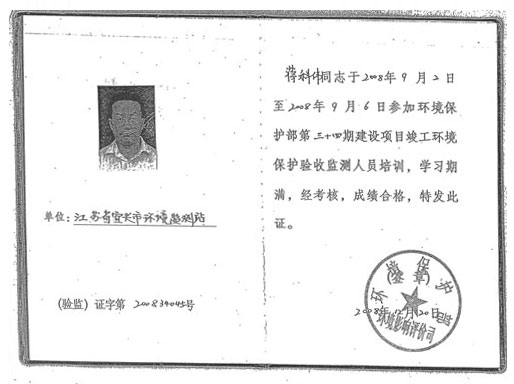 单位:江苏省宜兴市环境监测站
(验监)证字第 200834045号
蒋科伟同志于2008年9月2日
至2008年9月6日参加环境保
护部第三十四期建设项目竣工环境
保护验收监测人员培训,学习期
满,经考核,成绩合格,特发此
证。
环境保护部
(签章)
2008年12月20日
环境影响评价司